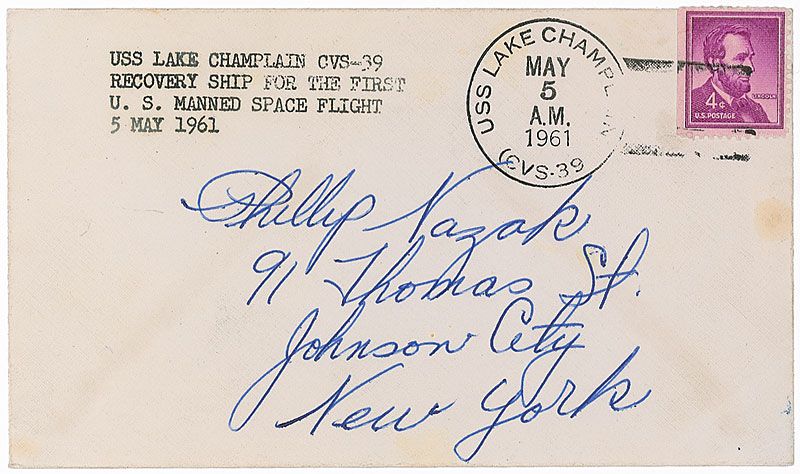 USS LAKE CHAMPLAIN CVS-39
RECOVERY SHIP FOR THE FIRST
U. S. MANNED SPACE FLIGHT
5 MAY 1961
USS LAKE CHAMPLAIN
MAY
5
A.M.
1961
(CVS-39
LINCOLN
4¢
U.S. POSTAGE
Phillip Nazak
91 Thomas St.
Johnson City
New York